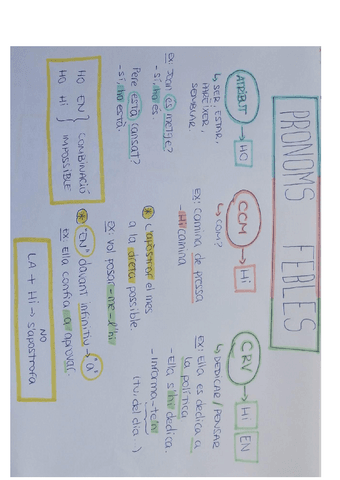 PRONOMS FEBLES
ATRIBUT → HO
↳ SER, ESTAR,
PARÈIXER,
SEMBLAR
Ex: Joan es metge?
- Sí, ho es
Pere està cansat?
- Sí, ho està.
CCM → Hi
↳ Com?
Ex: Camina de pressa
- Hi camina
CRV → HI EN
↳ DEDICAR / PENSAR
Ex: Ella es dedica a
la política
- Ella s'hi dedica.
- Informa-te'n
(tu, del dia...)
* L'apòstrof el més
a la dreta possible.
Ex: Vol posar-me-l'hi
* "EN" davant infinitiu → "a"
Ex: Ella confia a aprovar.
HO EN } COMBINACIÓ
HO Hi } IMPOSSIBLE
NO
LA + Hi → s'apostrofa